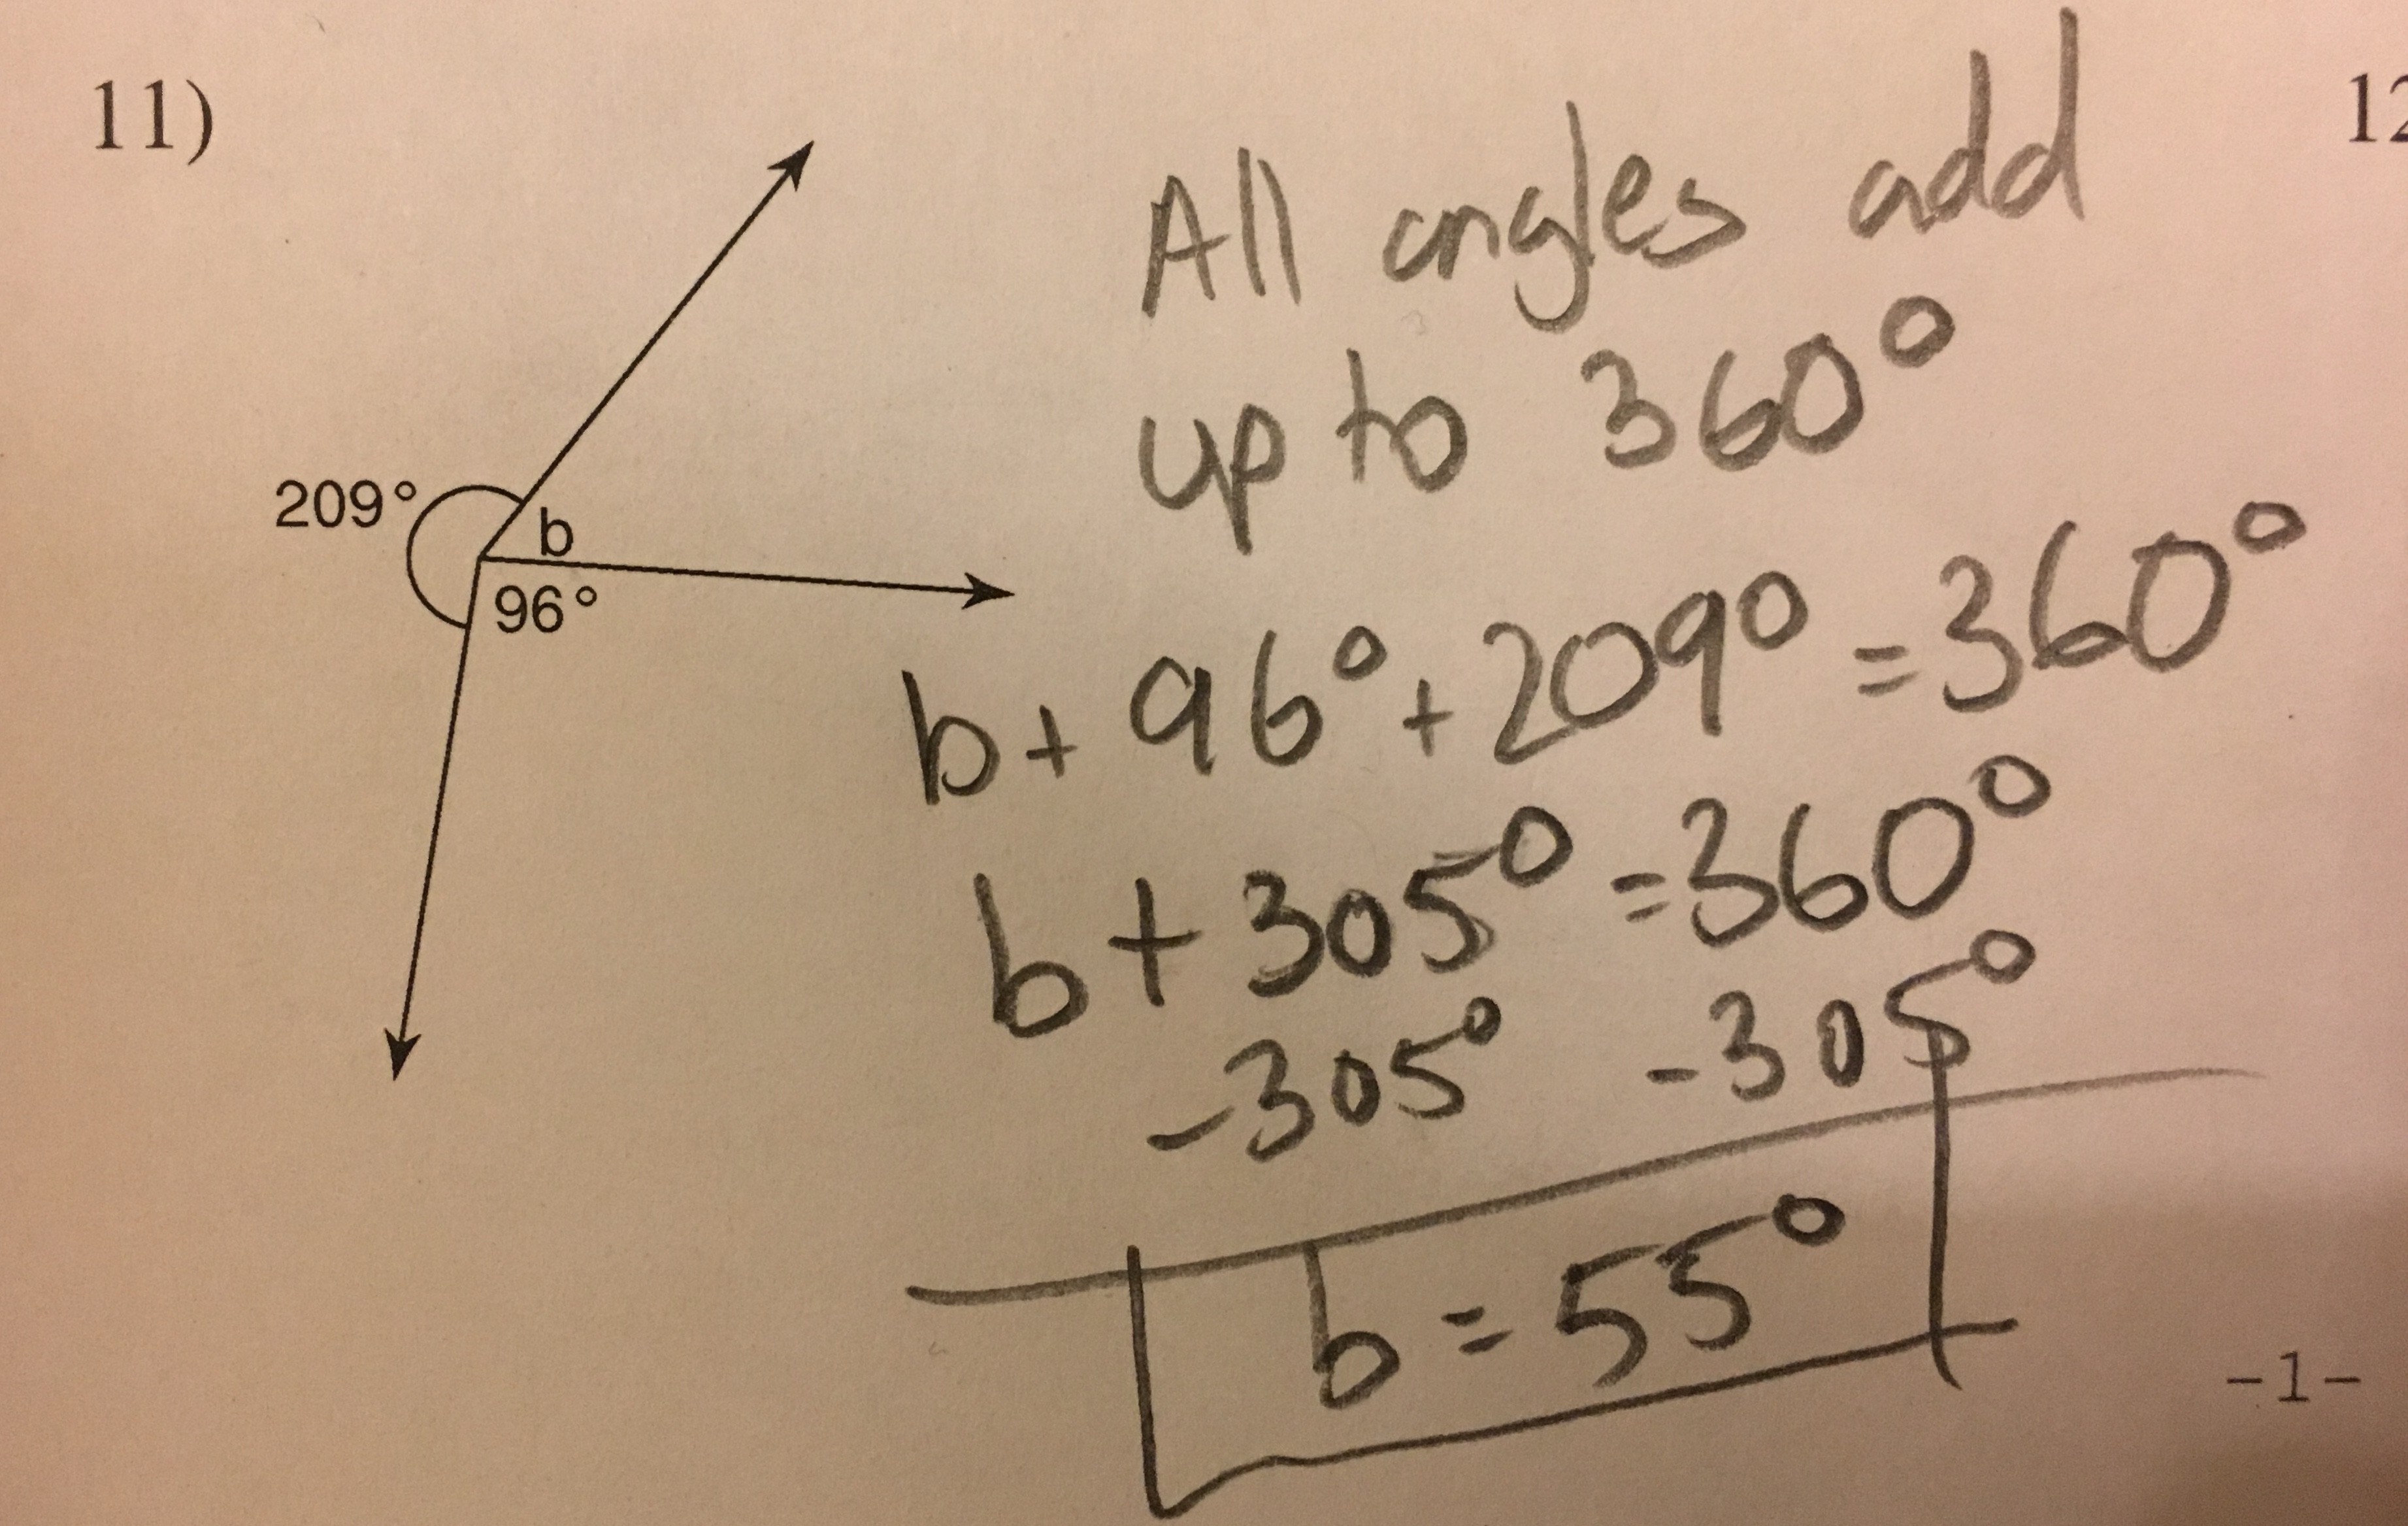 11)
12
209°
b
96°
All angles add
up to 360°
b + 96° + 209° = 360°
b + 305° = 360°
-305° -305°
b = 55°
-1-